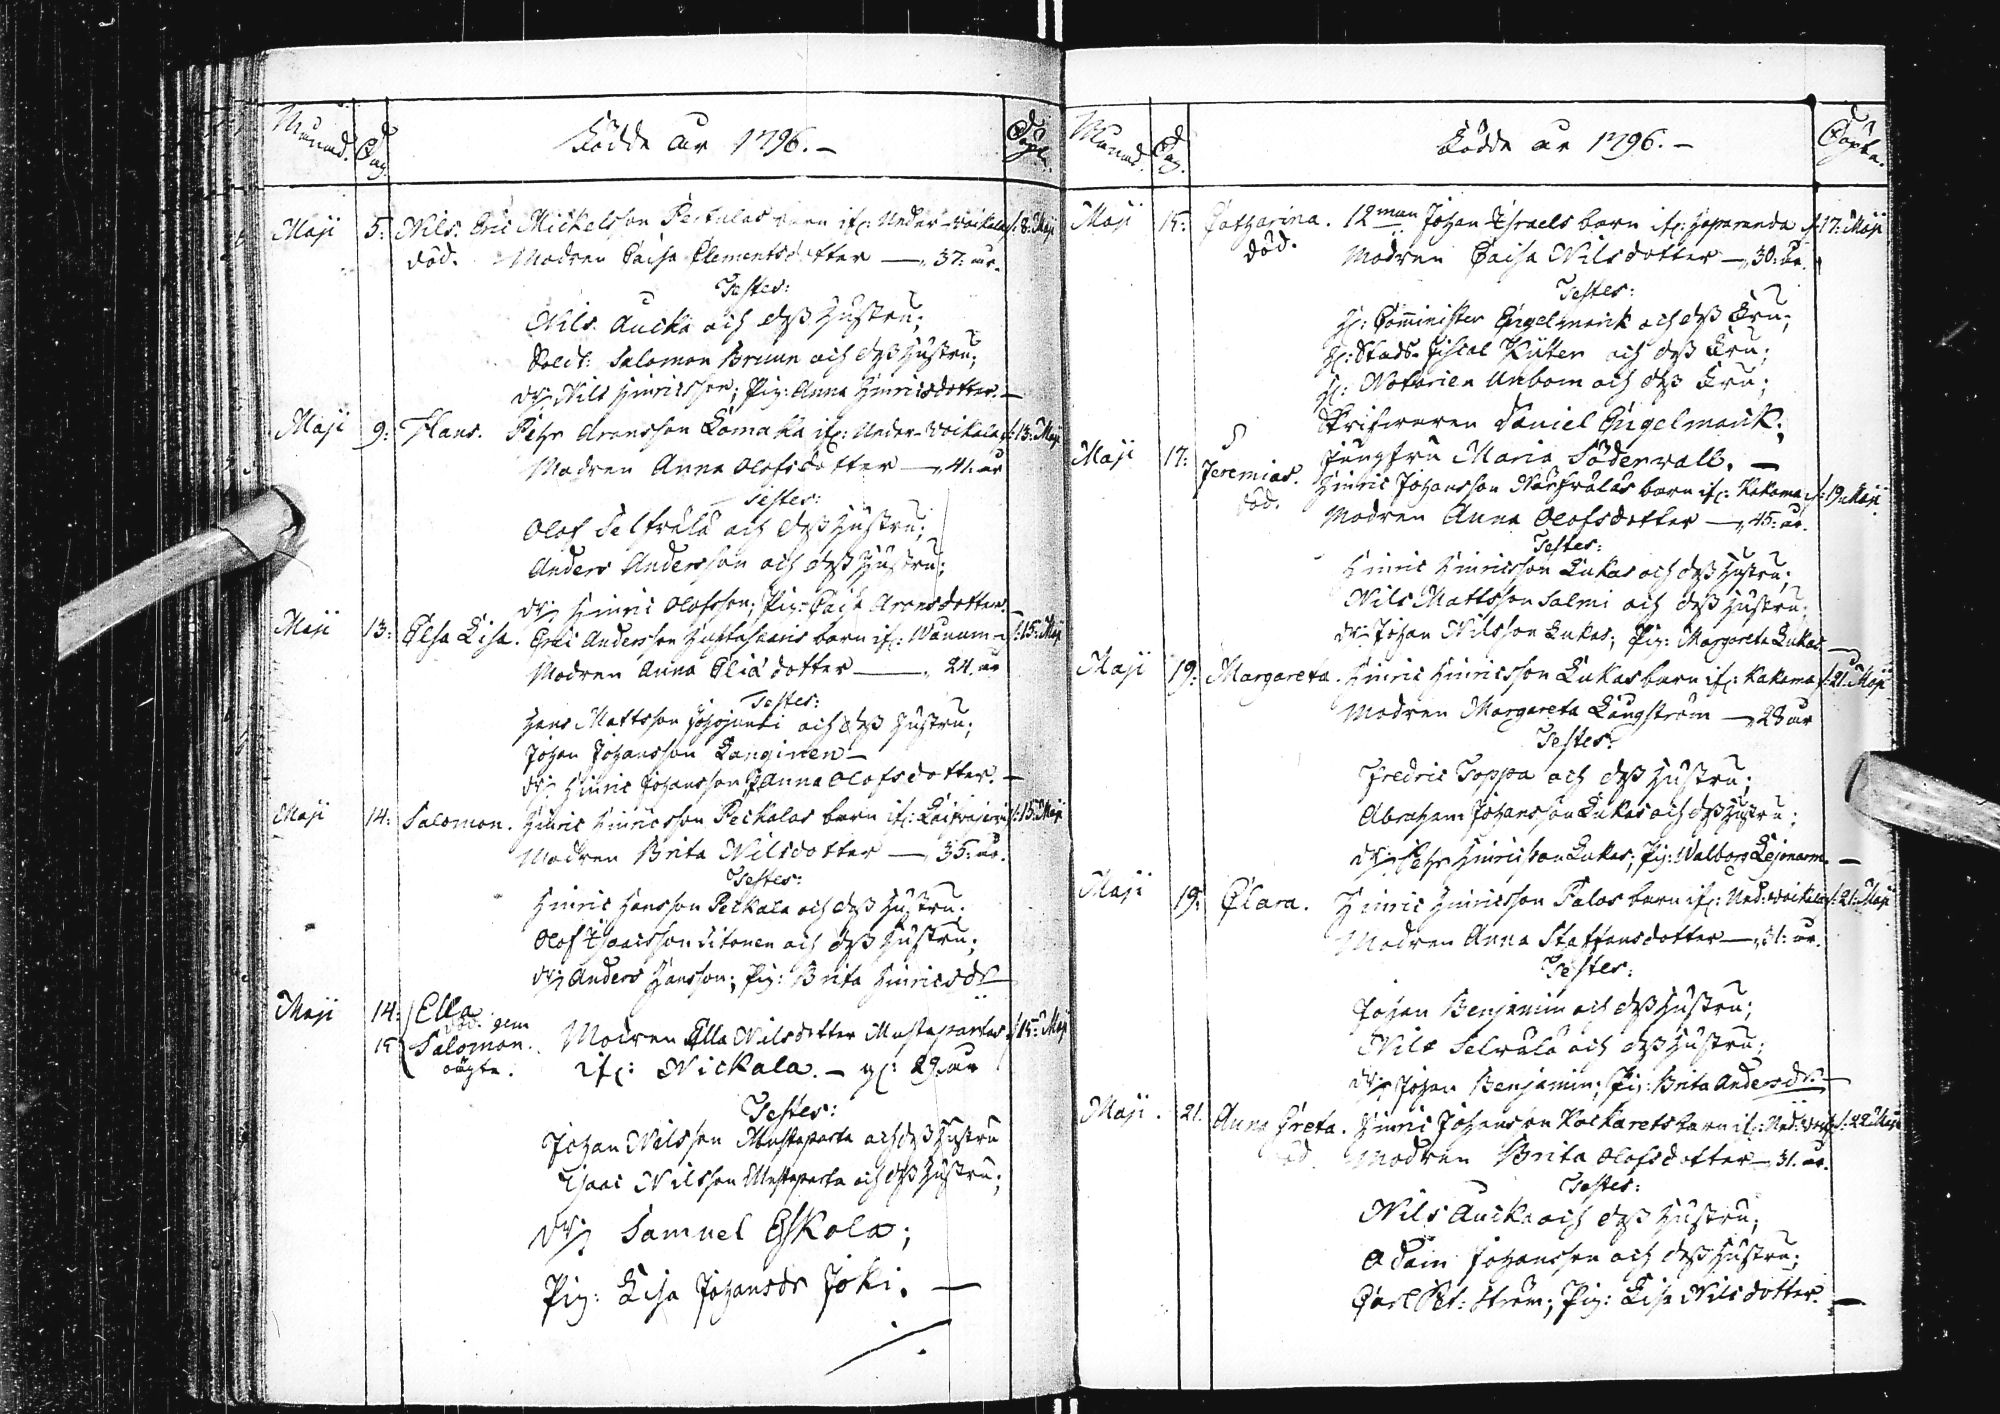 Månad. Dag. Födde år 1796. – Döpt.
Maji 5: Nils. Eric Mickelsson Pertulas barn if: Neder-Woickala f: 8: Maji
död. Modren Caisa Clementsdotter — 37: år.
Testes:
Nils Aucka och dess Hustru;
Sold: Salomon Brunn och dess Hustru;
Dr: Nils Hinricsson; Pig: Anna Hinricsdotter. –
Maji 9: Hans. Pehr Aronsson Lomaka if: Neder-Woikala f: 13: Maji
Modren Anna Olofsdotter — 41. år
Testes:
Olof och dess Hustru;
Anders Andersson och dess Hustru;
Dr: Hinric Olofsson; Pig: Caisa Aronsdotter.
Maji 13: Elsa Lisa. Eric Andersson barn if: f: 15: Maji
Modren Anna Eliædotter — 24. år
Testes:
Hans Mattsson och dess Hustru;
Johan Johansson Kanginen –
Dr: Hinric Johansson P. Anna Olofsdotter. –
Maji 14: Salomon. Hinric Hinricsson Peckalas barn if: f: 15: Maji
Modren Brita Nilsdotter — 35: år.
Testes:
Hinric Hansson Peckala och dess Hustru;
Olof Isaacsson Sitonen och dess Hustru;
Dr: Anders Hansson; Pig: Brita Hinricsdr
Maji 14: Ella
död. gem
15 Salomon. Modren Ella Nilsdotter Mustapartas f: 15: Maji
oägta. if: Nickala. – gl: 29. år
Testes:
Johan Nilsson Mustaparta och dess Hustru
Isaac Nilsson Mustaparta och dess Hustru;
Dr: Samuel Eskola;
Pig: Lisa Johansdr Joki. —
Månad. Dag. Födde år 1796. – Döpte.
Maji 15: Catharina. 12man Johan Israels barn if: Haparanda f: 17: Maji
död. Modren Caisa Nilsdotter — 30: år.
Testes:
H: Comminister Engelmark och dess Fru;
H: Stads-Fiscal Küter och dess Fru;
H: Notarien Unbom och dess Fru;
Skrifvaren Daniel Engelmark;
Jungfru Maria Söderwall. —
Maji 17: Jeremias. Hinric Johansson barn if: Kakama f: 19 Maji
död. Modren Anna Olofsdotter — 45: år.
Testes:
Hinric Hinricsson Lukas och dess Hustru;
Nils Mattsson Salmi och dess Hustru;
Dr: Johan Nilsson Lukas; Pig: Margareta Lukas
Maji 19: Margareta. Hinric Hinricsson Lukas barn if: Kakama f: 21: Maji
Modren Margareta Långström — 23 år
Testes:
Fredric Toppa och dess Hustru;
Abraham Johansson Lukas och dess Hustru;
Dr: Pehr Hinricsson Lukas; Pig: Walborg —
Maji 19: Clara. Hinric Hinricsson Palos barn if: Ned: Woikala f: 21: Maji
Modren Anna Staffansdotter — 31: år.
Testes:
Johan Benjamin och dess Hustru;
Nils och dess Hustru;
Dr: Johan Benjamin; Pig: Brita Andersdr. –
Maji. 21. Anna Greta. Hinric Johansson barn if: Ned: f: 22: Maji
död. Modren Brita Olofsdotter — 31. år.
Testes:
Nils Aucka och dess Hustru;
Adam Johansson och dess Hustru;
Carl Pet: Ström; Pig: Lisa Nilsdotter. —